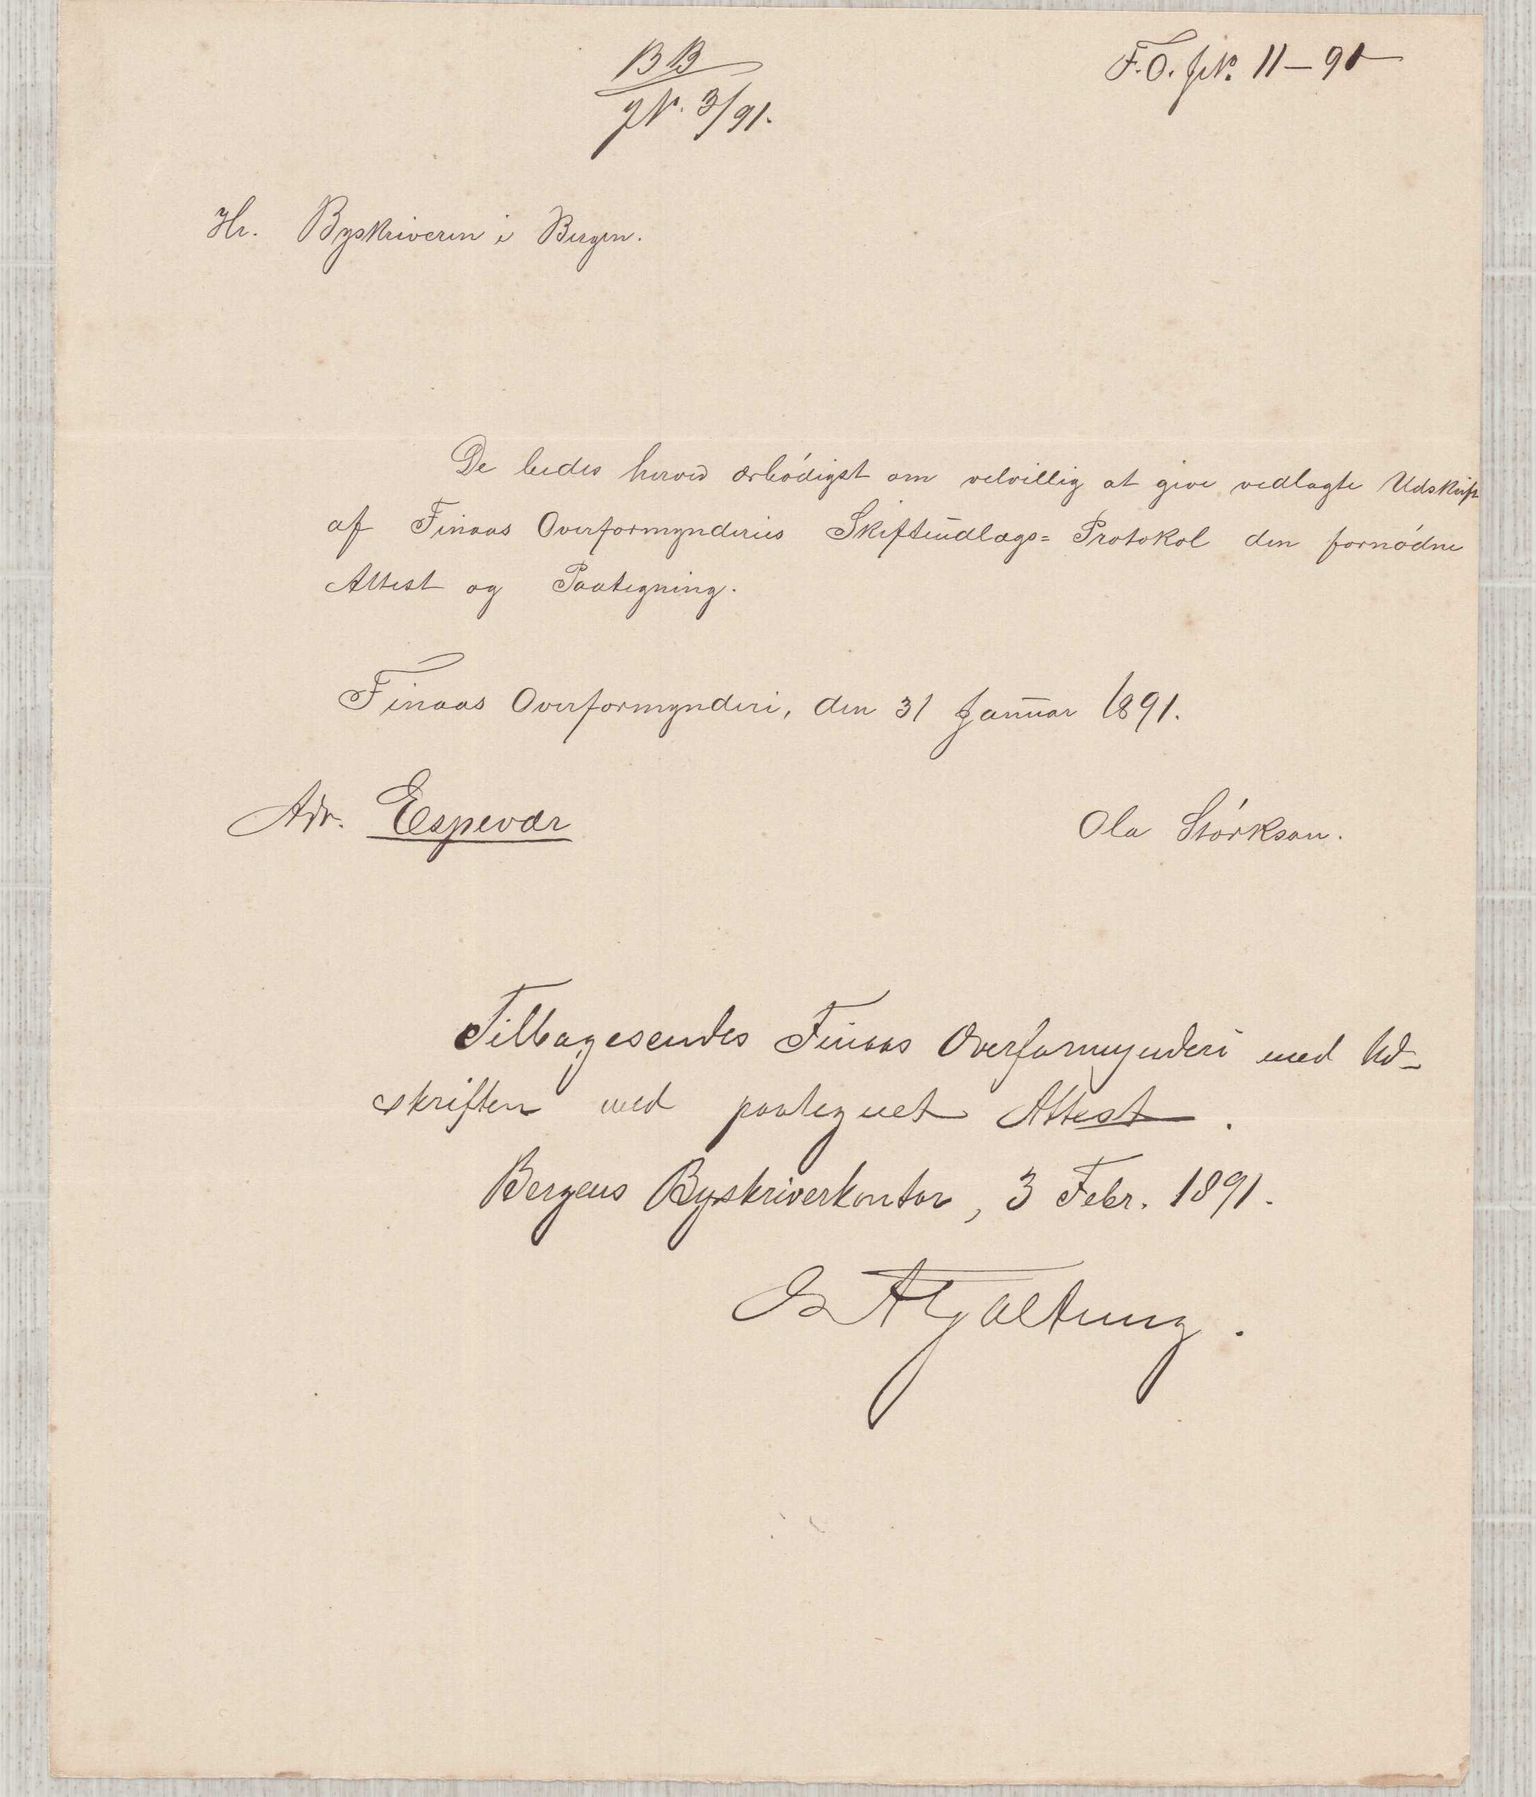 BB
JN. 3/91.
F.O. JN. 11-91
Hr. Byskriveren i Bergen.
De bedes herved ærbödigst om velvillig at give vedlagte Udskrift
af Finaas Overformynderies Skifteudlægs= Protokol den fornödne
Attest og Paategning.
Finaas Overformynderi, den 31 Januar 1891.
Adr. Espevær
Ola Störkson.
Tilbagesendes Finaas Overformynderi med Ud-
skriften med paategnet Attest.
Bergens Byskriverkontor, 3 Febr. 1891.
Galtung.